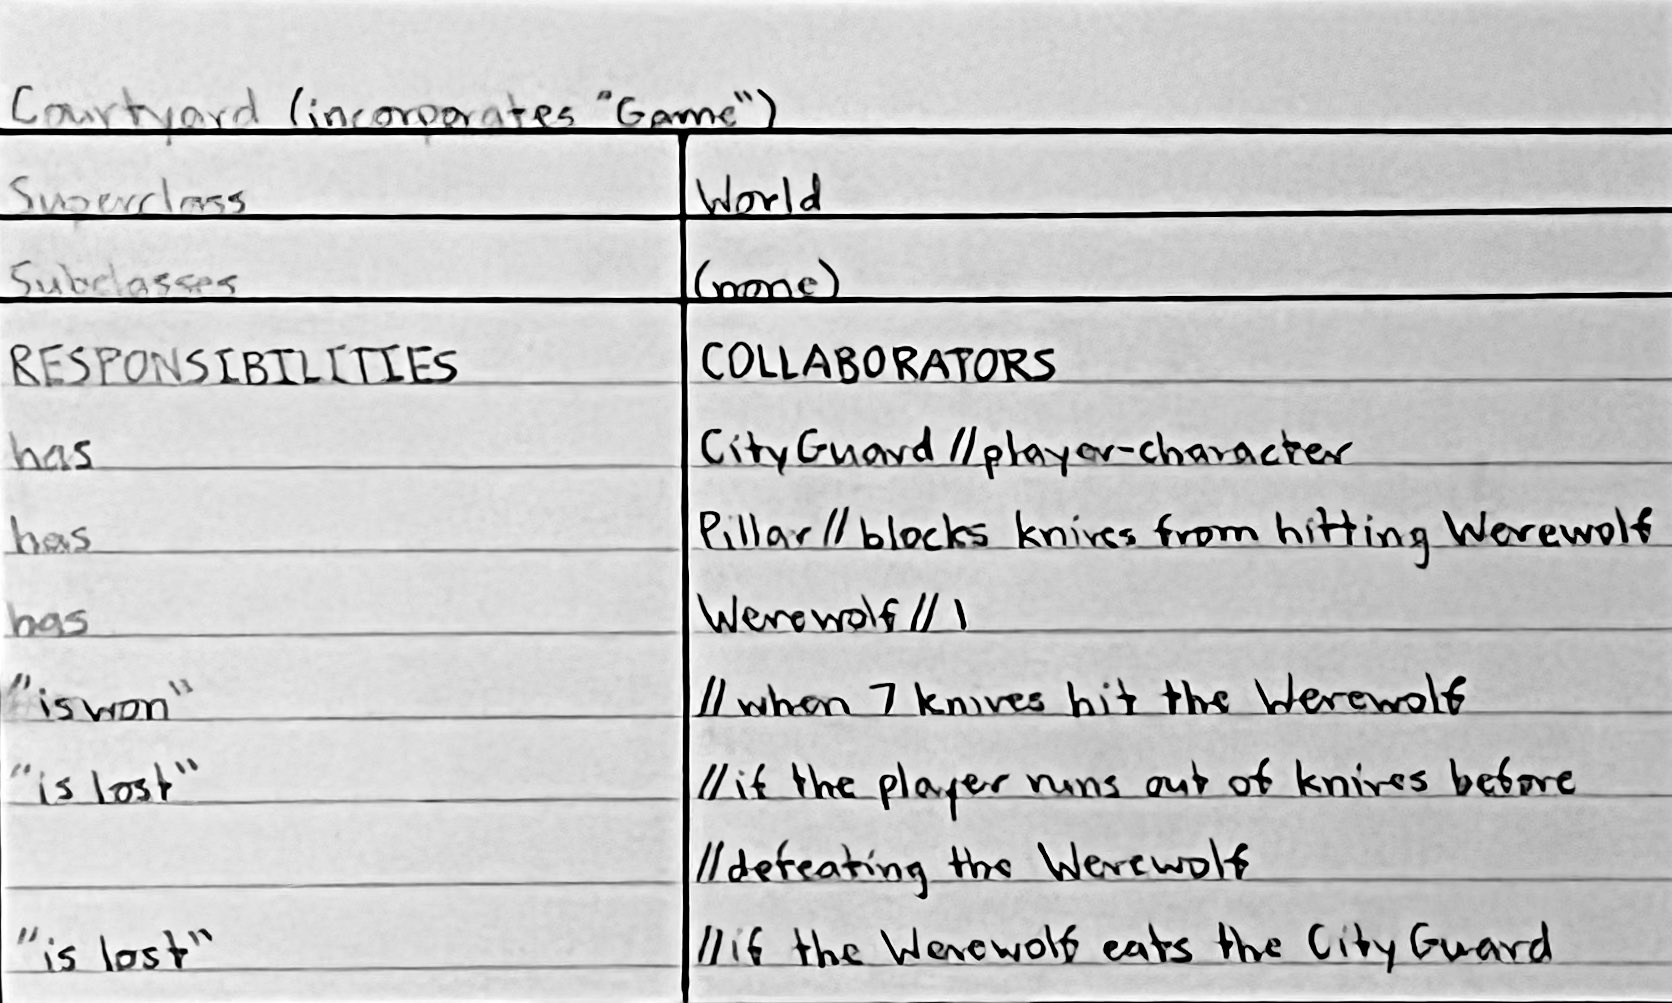 Courtyard (incorporates "Game")
Superclass World
Subclasses (none)
RESPONSIBILITIES COLLABORATORS
has CityGuard //player-character
has Pillar // blocks knives from hitting Werewolf
has Werewolf // 1
"is won" // when 7 knives hit the Werewolf
"is lost" // if the player runs out of knives before
// defeating the Werewolf
"is lost" // if the Werewolf eats the CityGuard